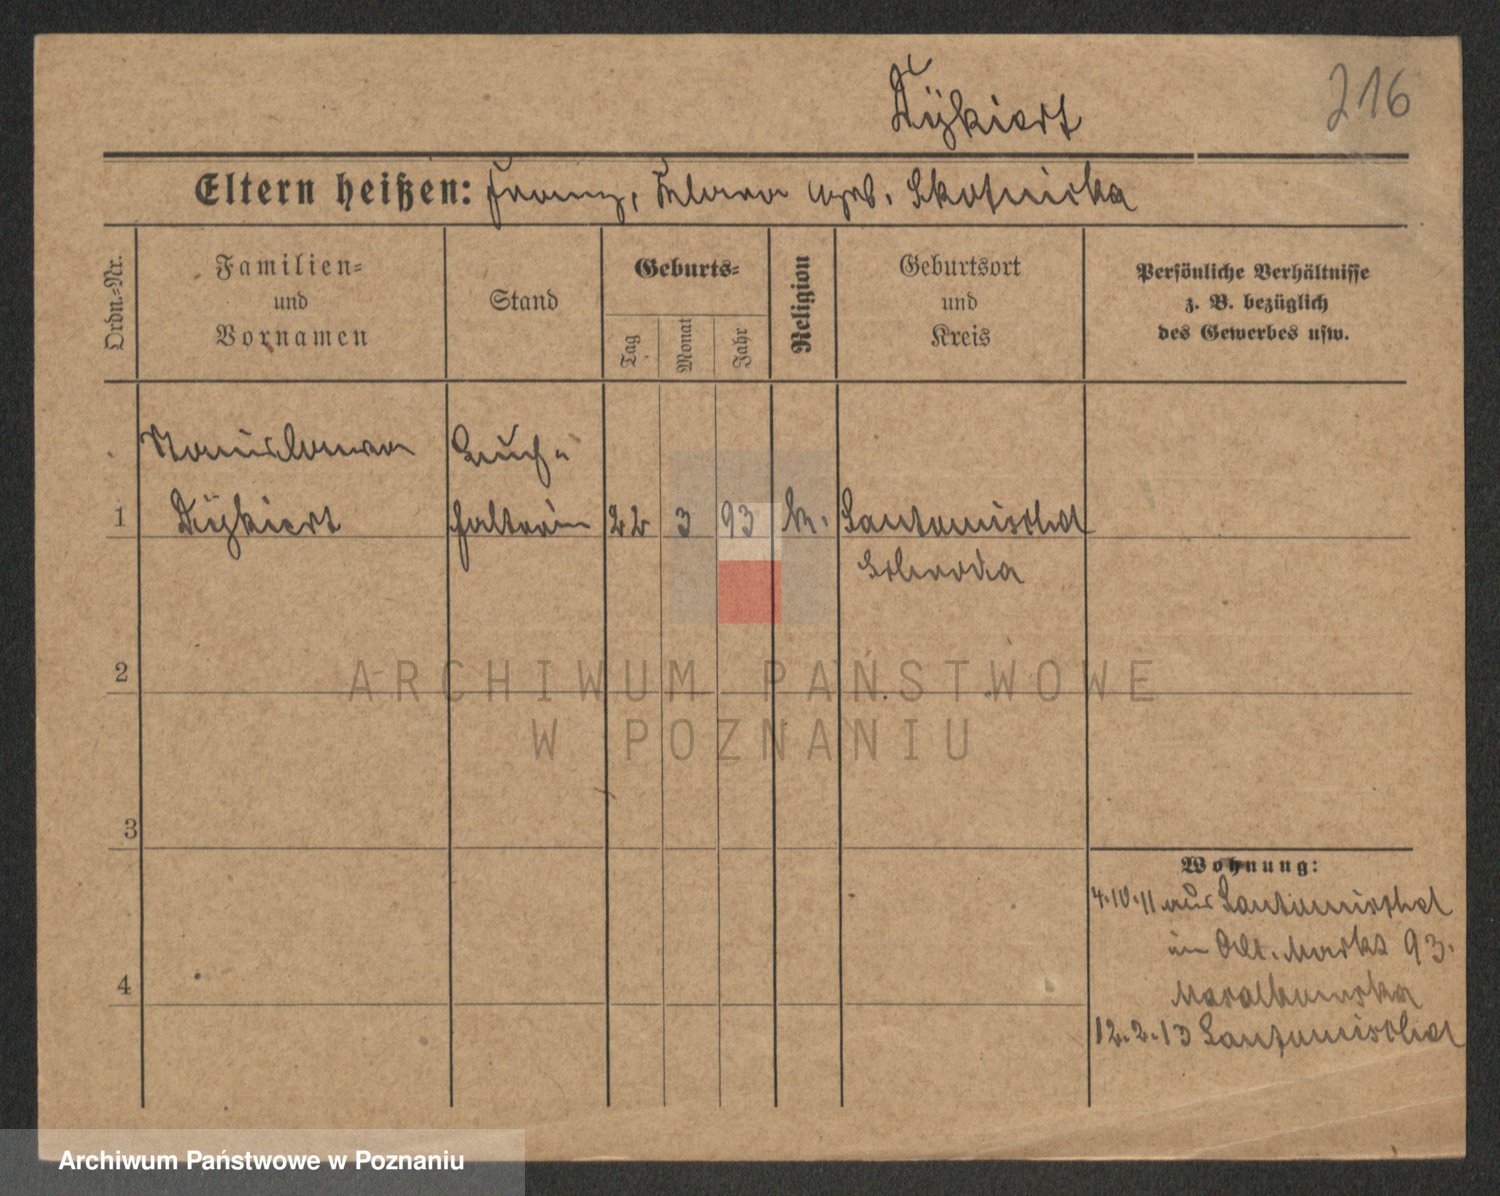 Dÿkiert
216
Eltern heißen: Franz, geb. Skotnicka
Ordn.-Nr.
Familien-
und
Vornamen
Stand
Geburts-
Tag
Monat
Jahr
Religion
Geburtsort
und
Kreis
Persönliche Verhältnisse
z. B. bezüglich
des Gewerbes usw.
Stanislawa Buch-
1 Dÿkiert halterin 22 3 93 k. Santomischel
Schroda
2
3
4
Wohnung:
4.10.11 aus Santomischel
in Alt. Markt 93.
12.2.13 Santomischel
ARCHIWUM PAŃSTWOWE
W POZNANIU
Archiwum Państwowe w Poznaniu